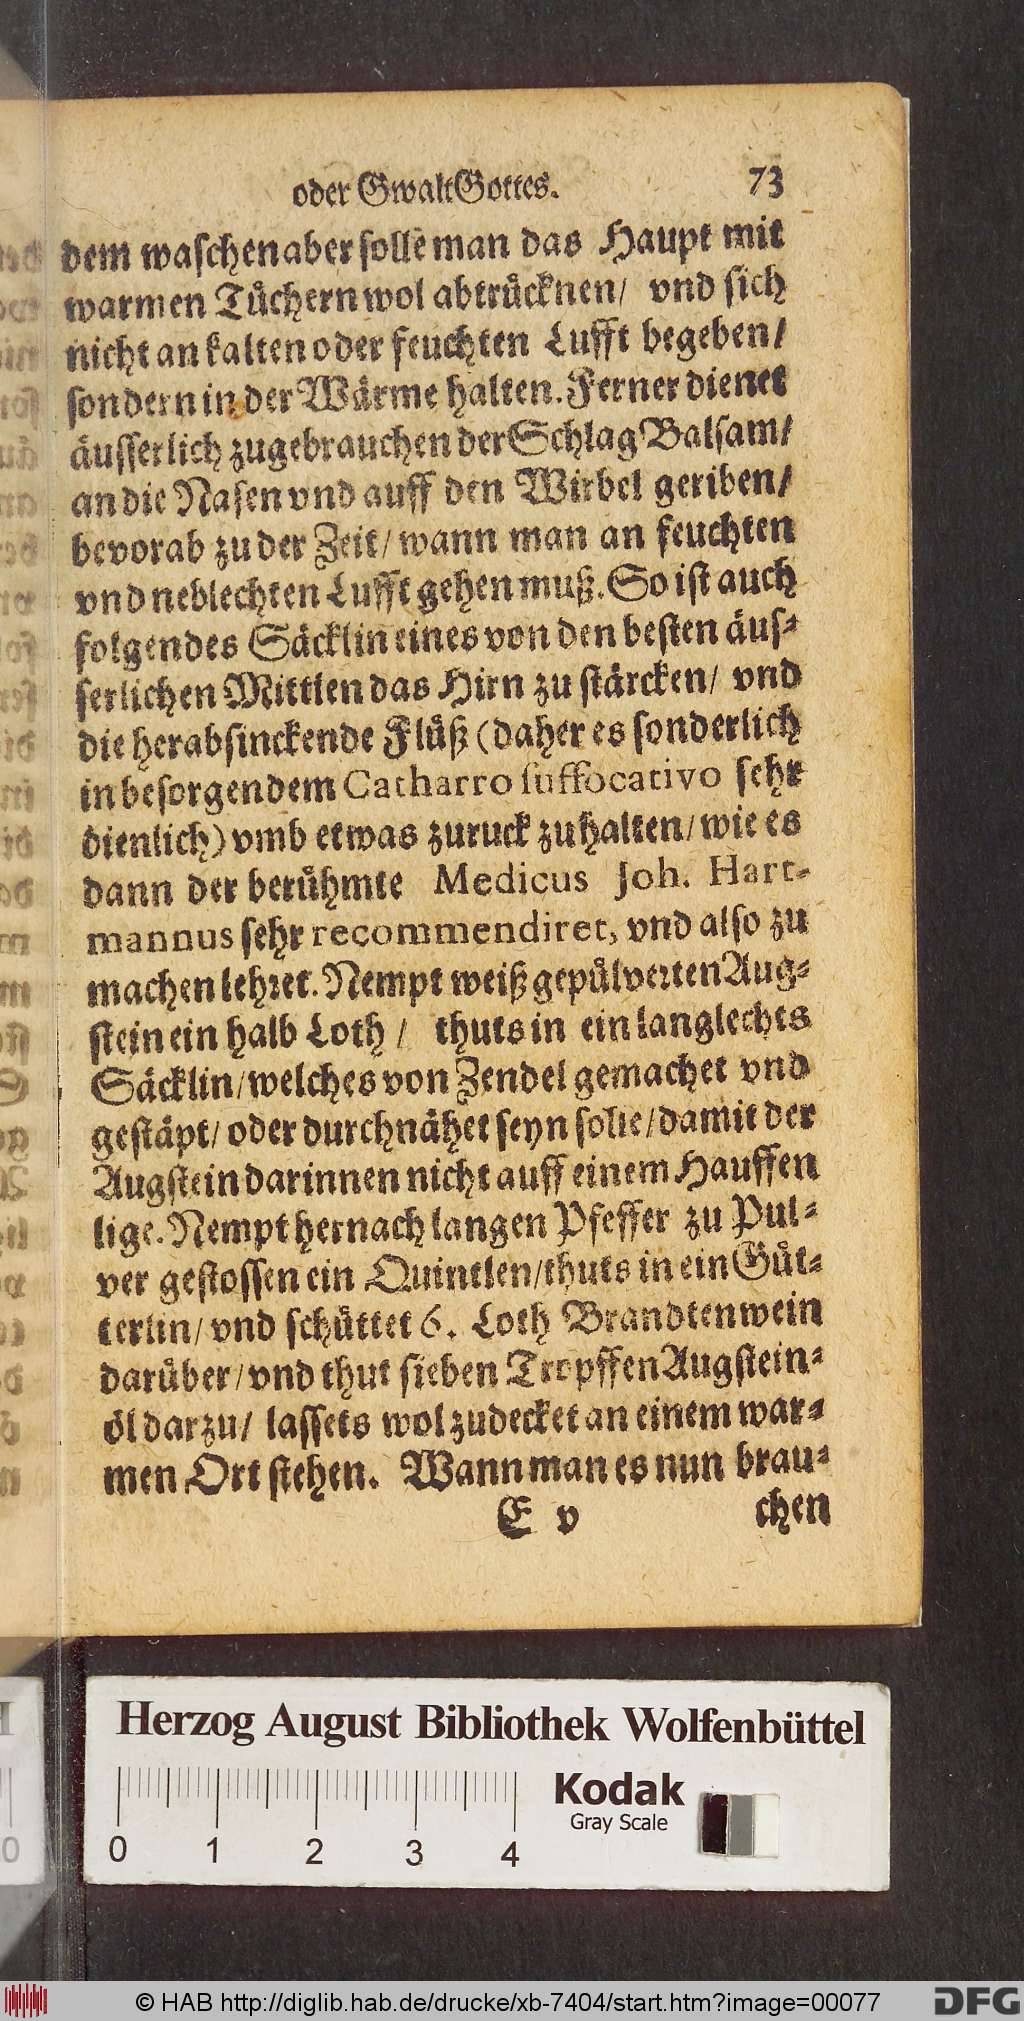 oder Gwalt Gottes. 73
dem waschen aber solle man das Haupt mit
warmen Tüchern wol abtrücknen/ vnd sich
nicht an kalten oder feuchten Lufft begeben/
sondern in der Wärme halten. Ferner dienet
äusserlich zugebrauchen der Schlag Balsam/
an die Nasen vnd auff den Wirbel geriben/
bevorab zu der Zeit/ wann man an feuchten
vnd neblechten Lufft gehen muß. So ist auch
folgendes Säcklin eines von den besten äus-
serlichen Mittlen das Hirn zu stärcken/ vnd
die herabsinckende Flüß (daher es sonderlich
in besorgendem Catharro suffocativo sehr
dienlich) vmb etwas zuruck zuhalten/ wie es
dann der berühmte Medicus Joh. Hart-
mannus sehr recommendiret, vnd also zu
machen lehret. Nempt weiß gepülverten Aug-
stein ein halb Loth / thuts in ein langlechts
Säcklin/ welches von Zendel gemachet vnd
gestäpt/ oder durchnähet seyn solle/ damit der
Augstein darinnen nicht auff einem Hauffen
lige. Nempt hernach langen Pfeffer zu Pul-
ver gestossen ein Quintlen/ thuts in ein Güt-
terlin/ vnd schüttet 6. Loth Brandtenwein
darüber/ vnd thut sieben Tropffen Augstein-
öl darzu/ lassets wol zudecket an einem war-
men Ort stehen. Wann man es nun brau-
E v chen
Herzog August Bibliothek Wolfenbüttel
Kodak
Gray Scale
0 1 2 3 4
© HAB http://diglib.hab.de/drucke/xb-7404/start.htm?image=00077
DFG